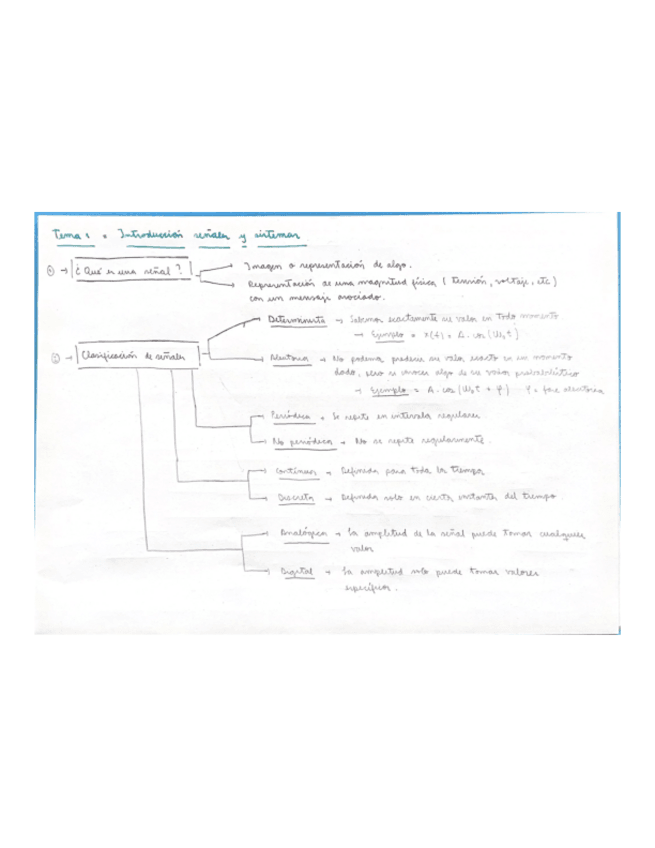 Tema 1 • Introducción señales y sistemas
① → ¿Qué es una señal?
→ Imagen o representación de algo.
→ Representación de una magnitud física (tensión, voltaje, etc)
con un mensaje asociado.
② → Clasificación de señales
→ Determinista → Sabemos exactamente su valor en todo momento
→ Ejemplo = x(t) = A · cos(ω₀t)
→ Aleatoria → No podemos predecir su valor exacto en un momento
dado, pero se conoce algo de su valor probabilístico
→ Ejemplo = A · cos(ω₀t + φ) φ = fase aleatoria
→ Periódica → Se repite en intervalos regulares.
→ No periódica → No se repite regularmente.
→ Continuas → Definida para todo tiempo
→ Discreta → Definida solo en ciertos instantes del tiempo
→ Analógica → La amplitud de la señal puede tomar cualquier
valor
→ Digital → La amplitud solo puede tomar valores
específicos.